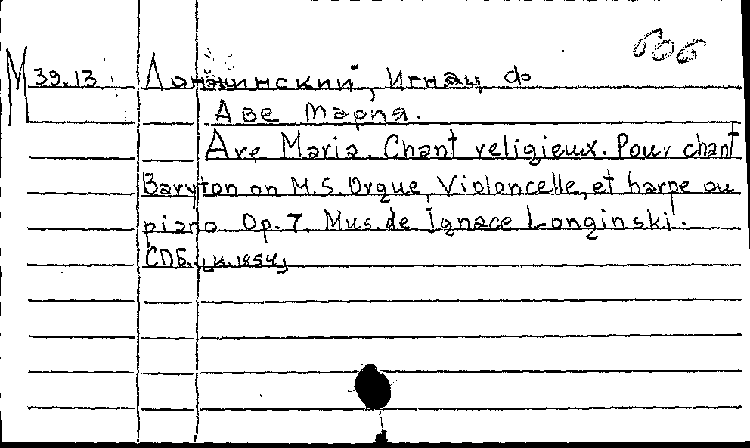 606
М 39.13 Лонгинский, Игнац Ф
Аве Мария.
Ave Maria. Chant religieux. Pour chant
Baryton on M.S. Orgue, Violoncelle, et harpe ou
piano Op. 7. Mus. de Ignace Longinski.
СПБ.,